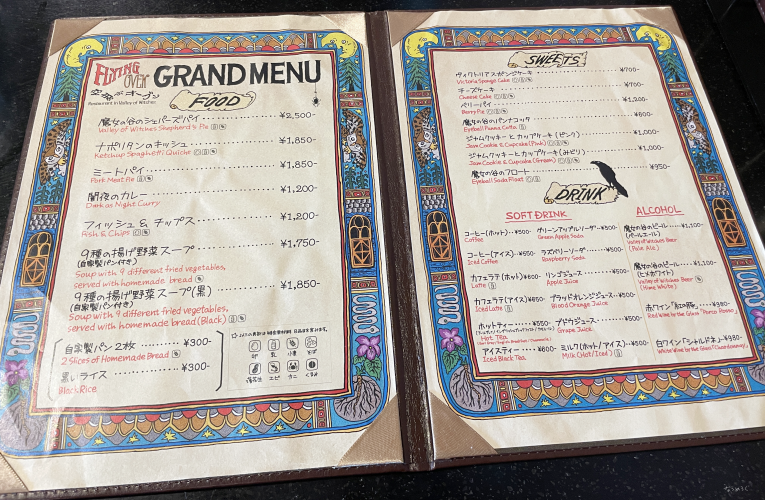 FLYING
OVER
空飛ぶオーブン
Restaurant in Valley of Witches
GRAND MENU
FOOD
魔女の谷のシェパーズパイ ¥2,500-
Valley of Witches Shepherd's Pie
ナポリタンのキッシュ ¥1,850-
Ketchup Spaghetti Quiche
ミートパイ ¥1,850-
Pork Meat Pie
闇夜のカレー ¥1,200-
Dark as Night Curry
フィッシュ & チップス ¥1,200-
Fish & Chips
9種の揚げ野菜スープ ¥1,750-
(自家製パン付き)
Soup with 9 different fried vegetables,
served with homemade bread
9種の揚げ野菜スープ(黒) ¥1,850-
(自家製パン付き)
Soup with 9 different fried vegetables,
served with homemade bread (Black)
自家製パン2枚 ¥300-
2 Slices of Homemade Bread
黒いライス ¥300-
Black Rice
卵 乳 小麦 そば
落花生 エビ カニ くるみ
SWEETS
ヴィクトリアスポンジケーキ ¥700-
Victoria Sponge Cake
チーズケーキ ¥700-
Cheese Cake
ベリーパイ ¥1,200-
Berry Pie
魔女の谷のパンナコッタ ¥600-
Eyeball Panna Cotta
ジャムクッキーとカップケーキ(ピンク) ¥1,000-
Jam Cookie & Cupcake (Pink)
ジャムクッキーとカップケーキ(みどり) ¥1,000-
Jam Cookie & Cupcake (Green)
魔女の谷のフロート ¥950-
Eyeball Soda Float
DRINK
SOFT DRINK
コーヒー(ホット) ¥500-
Coffee
コーヒー(アイス) ¥550-
Iced Coffee
カフェラテ(ホット) ¥600-
Latte
カフェラテ(アイス) ¥650-
Iced Latte
ホットティー ¥550-
Hot Tea
アイスティー ¥600-
Iced Black Tea
グリーンアップルソーダ ¥500-
Green Apple Soda
ラズベリーソーダ ¥500-
Raspberry Soda
リンゴジュース ¥500-
Apple Juice
ブラッドオレンジジュース ¥500-
Blood Orange Juice
ブドウジュース ¥500-
Grape Juice
ミルク(ホット/アイス) ¥500-
Milk (Hot/Iced)
ALCOHOL
魔女の谷のビール ¥1,100-
(ペールエール)
Valley of Witches Beer
(Pale Ale)
魔女の谷のビール ¥1,100-
(ヒメホワイト)
Valley of Witches Beer
(Hime White)
赤ワイン「紅の豚」 ¥980-
Red Wine by the Glass "Porco Rosso"
白ワイン「シャルドネ」 ¥980-
White Wine by the Glass "Chardonnay"